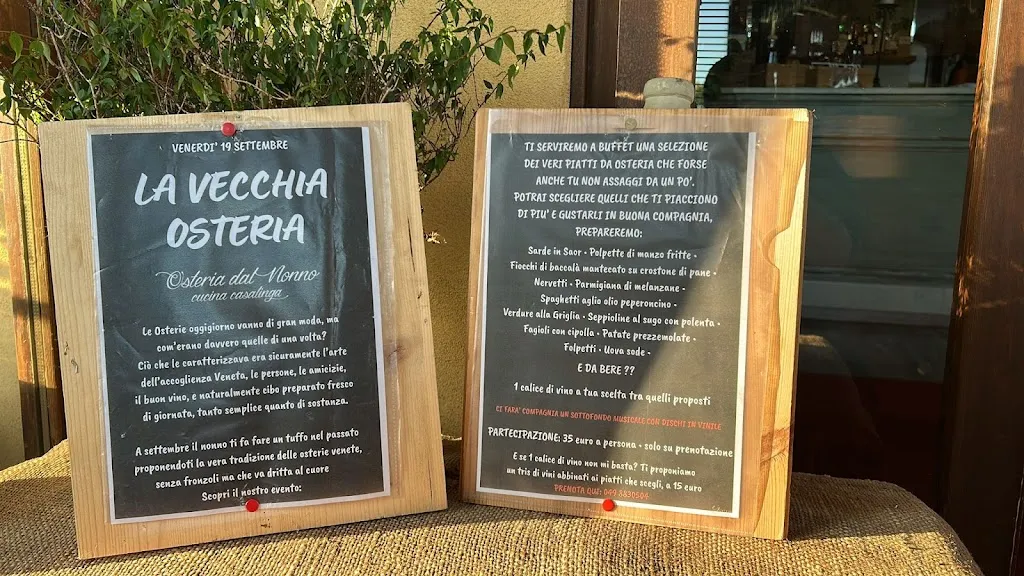 VENERDI' 19 SETTEMBRE
LA VECCHIA
OSTERIA
Osteria dal Nonno
cucina casalinga
Le Osterie oggigiorno vanno di gran moda, ma
com'erano davvero quelle di una volta?
Ciò che le caratterizzava era sicuramente l'arte
dell'accoglienza Veneta, le persone, le amicizie,
il buon vino, e naturalmente cibo preparato fresco
di giornata, tanto semplice quanto di sostanza.
A settembre il nonno ti fa fare un tuffo nel passato
proponendoti la vera tradizione delle osterie venete,
senza fronzoli ma che va dritta al cuore
Scopri il nostro evento:
TI SERVIREMO A BUFFET UNA SELEZIONE
DEI VERI PIATTI DA OSTERIA CHE FORSE
ANCHE TU NON ASSAGGI DA UN PO'.
POTRAI SCEGLIERE QUELLI CHE TI PIACCIONO
DI PIU' E GUSTARLI IN BUONA COMPAGNIA,
PREPAREREMO:
Sarde in Saor - Polpette di manzo fritte -
Fiocchi di baccalà mantecato su crostone di pane -
Nervetti - Parmigiana di melanzane -
Spaghetti aglio olio peperoncino -
Verdure alla Griglia - Seppioline al sugo con polenta -
Fagioli con cipolla - Patate prezzemolate -
Folpetti - Uova sode -
E DA BERE ??
1 calice di vino a tua scelta tra quelli proposti
CI FARA' COMPAGNIA UN SOTTOFONDO MUSICALE CON DISCHI IN VINILE
PARTECIPAZIONE: 35 euro a persona - solo su prenotazione
E se 1 calice di vino non mi basta? Ti proponiamo
un tris di vini abbinati ai piatti che scegli, a 15 euro
PRENOTA QUI: 049 8830504